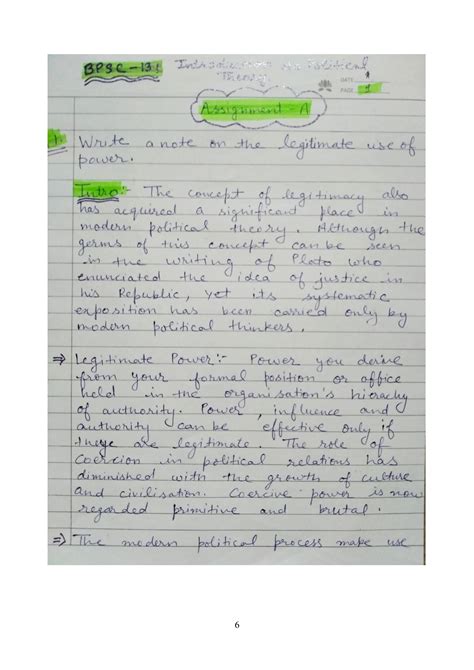 BPSC-131 Introduction to Political
Theory
DATE
PAGE 1
Assignment - A
Write a note on the legitimate use of
power.
Intro:- The concept of legitimacy also
has acquired a significant place in
modern political theory. Although the
germs of this concept can be seen
in the writing of Plato who
enunciated the idea of justice in
his Republic, Yet its systematic
exposition has been carried only by
modern political thinkers.
⇒ Legitimate Power:- Power you derive
from your formal position or office
held in the organisation's hierachy
of authority. Power, influence and
authority can be effective only if
these are legitimate. The role of
Coercion in political relations has
diminished with the growth of culture
and civilisation. Coercive power is now
regarded primitive and brutal.
⇒ The modern political process make use
6